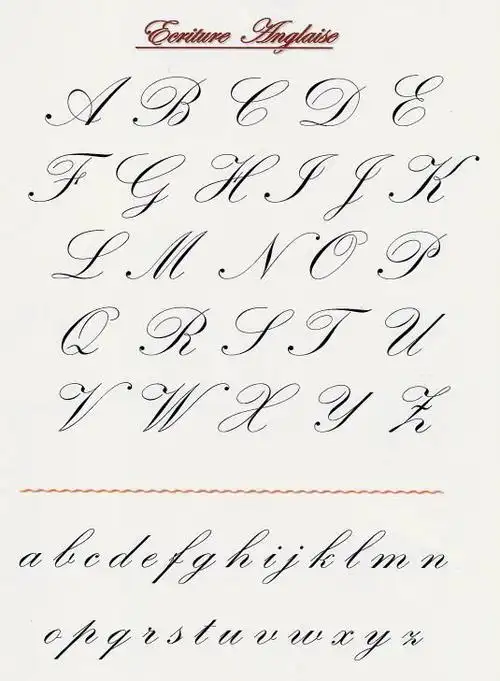 Ecriture Anglaise
A B C D E
F G H I J K
L M N O P
Q R S T U
V W X Y Z
a b c d e f g h i j k l m n
o p q r s t u v w x y z